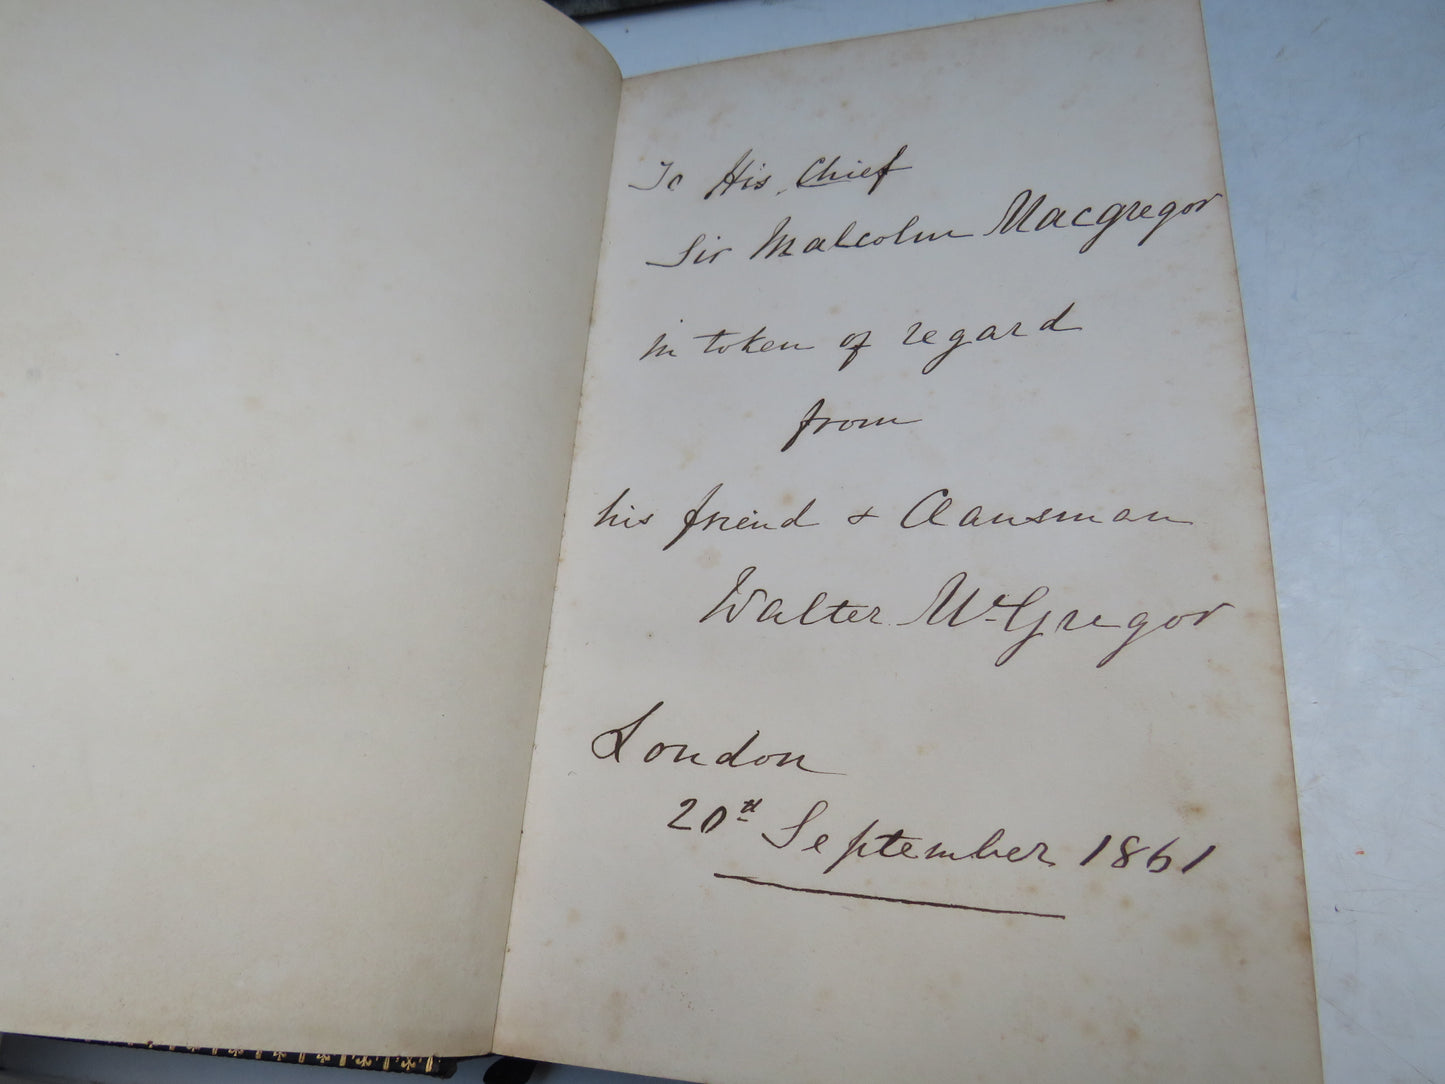 To His Chief
Sir Malcolm Macgregor
in token of regard
from
his friend & Clansman
Walter McGregor
London
20th September 1861